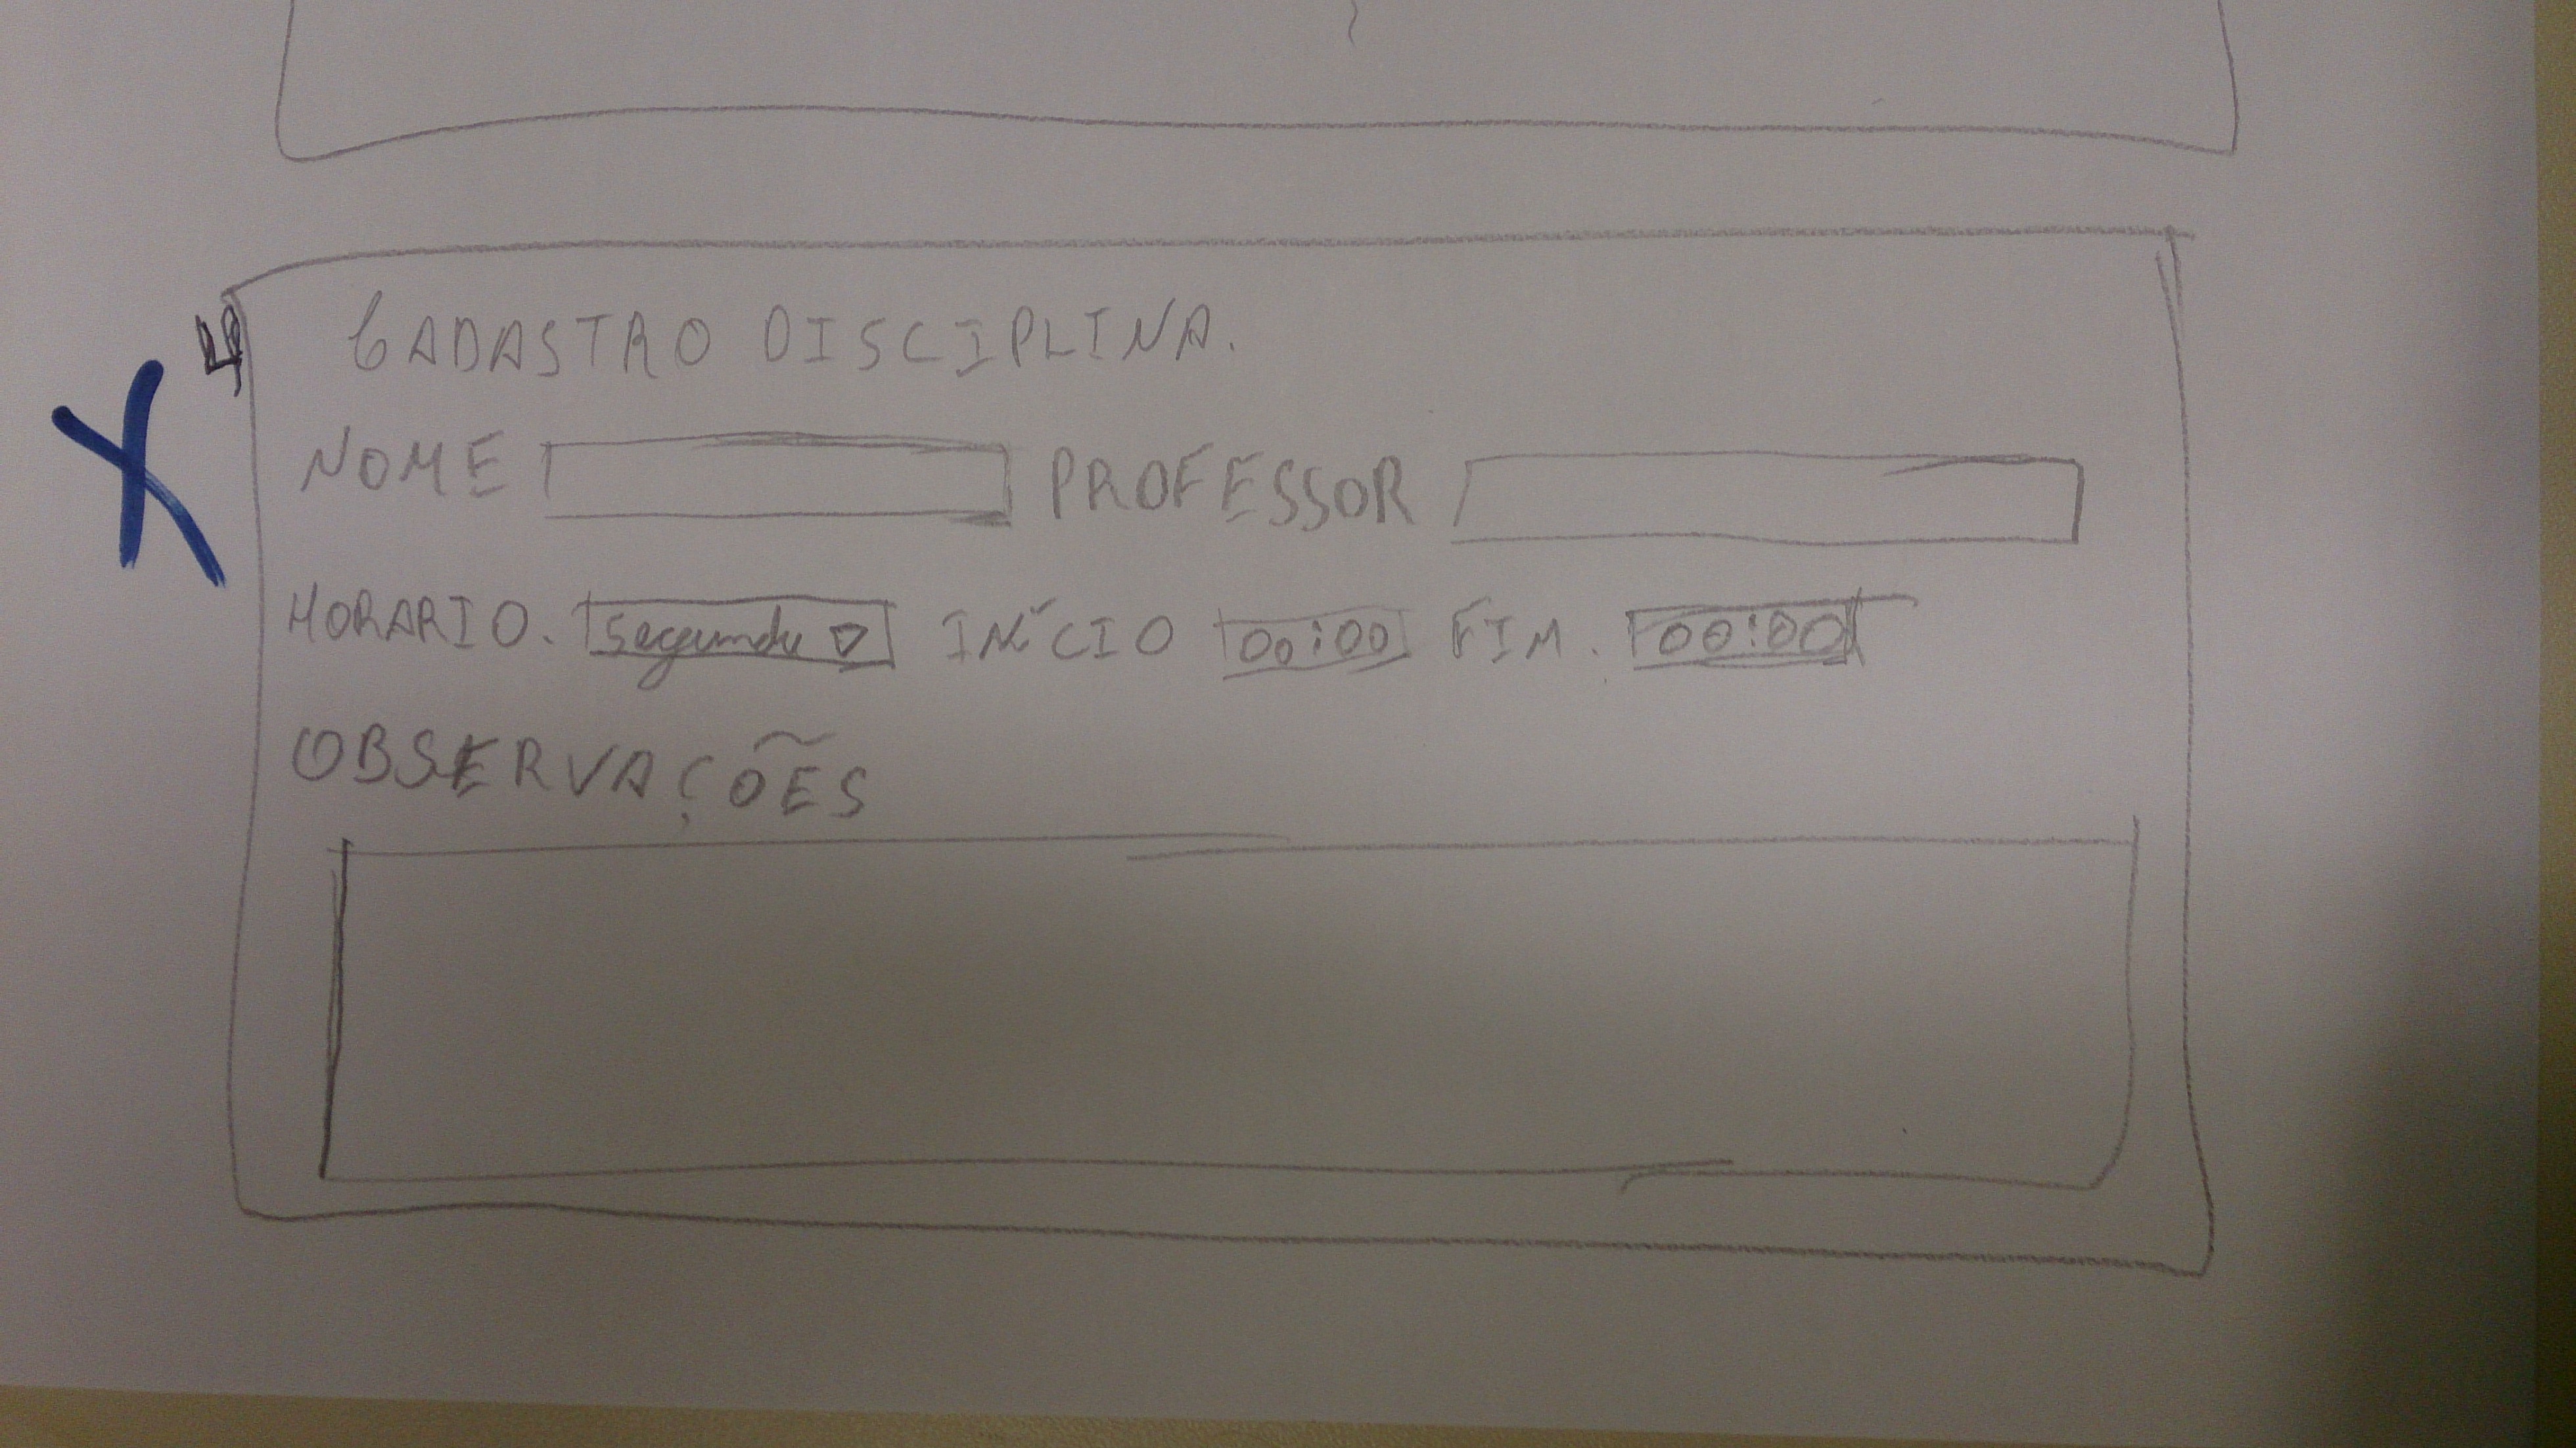 4
CADASTRO DISCIPLINA.
NOME PROFESSOR
HORARIO. Segunda INÍCIO 00:00 FIM. 00:00
OBSERVAÇÕES